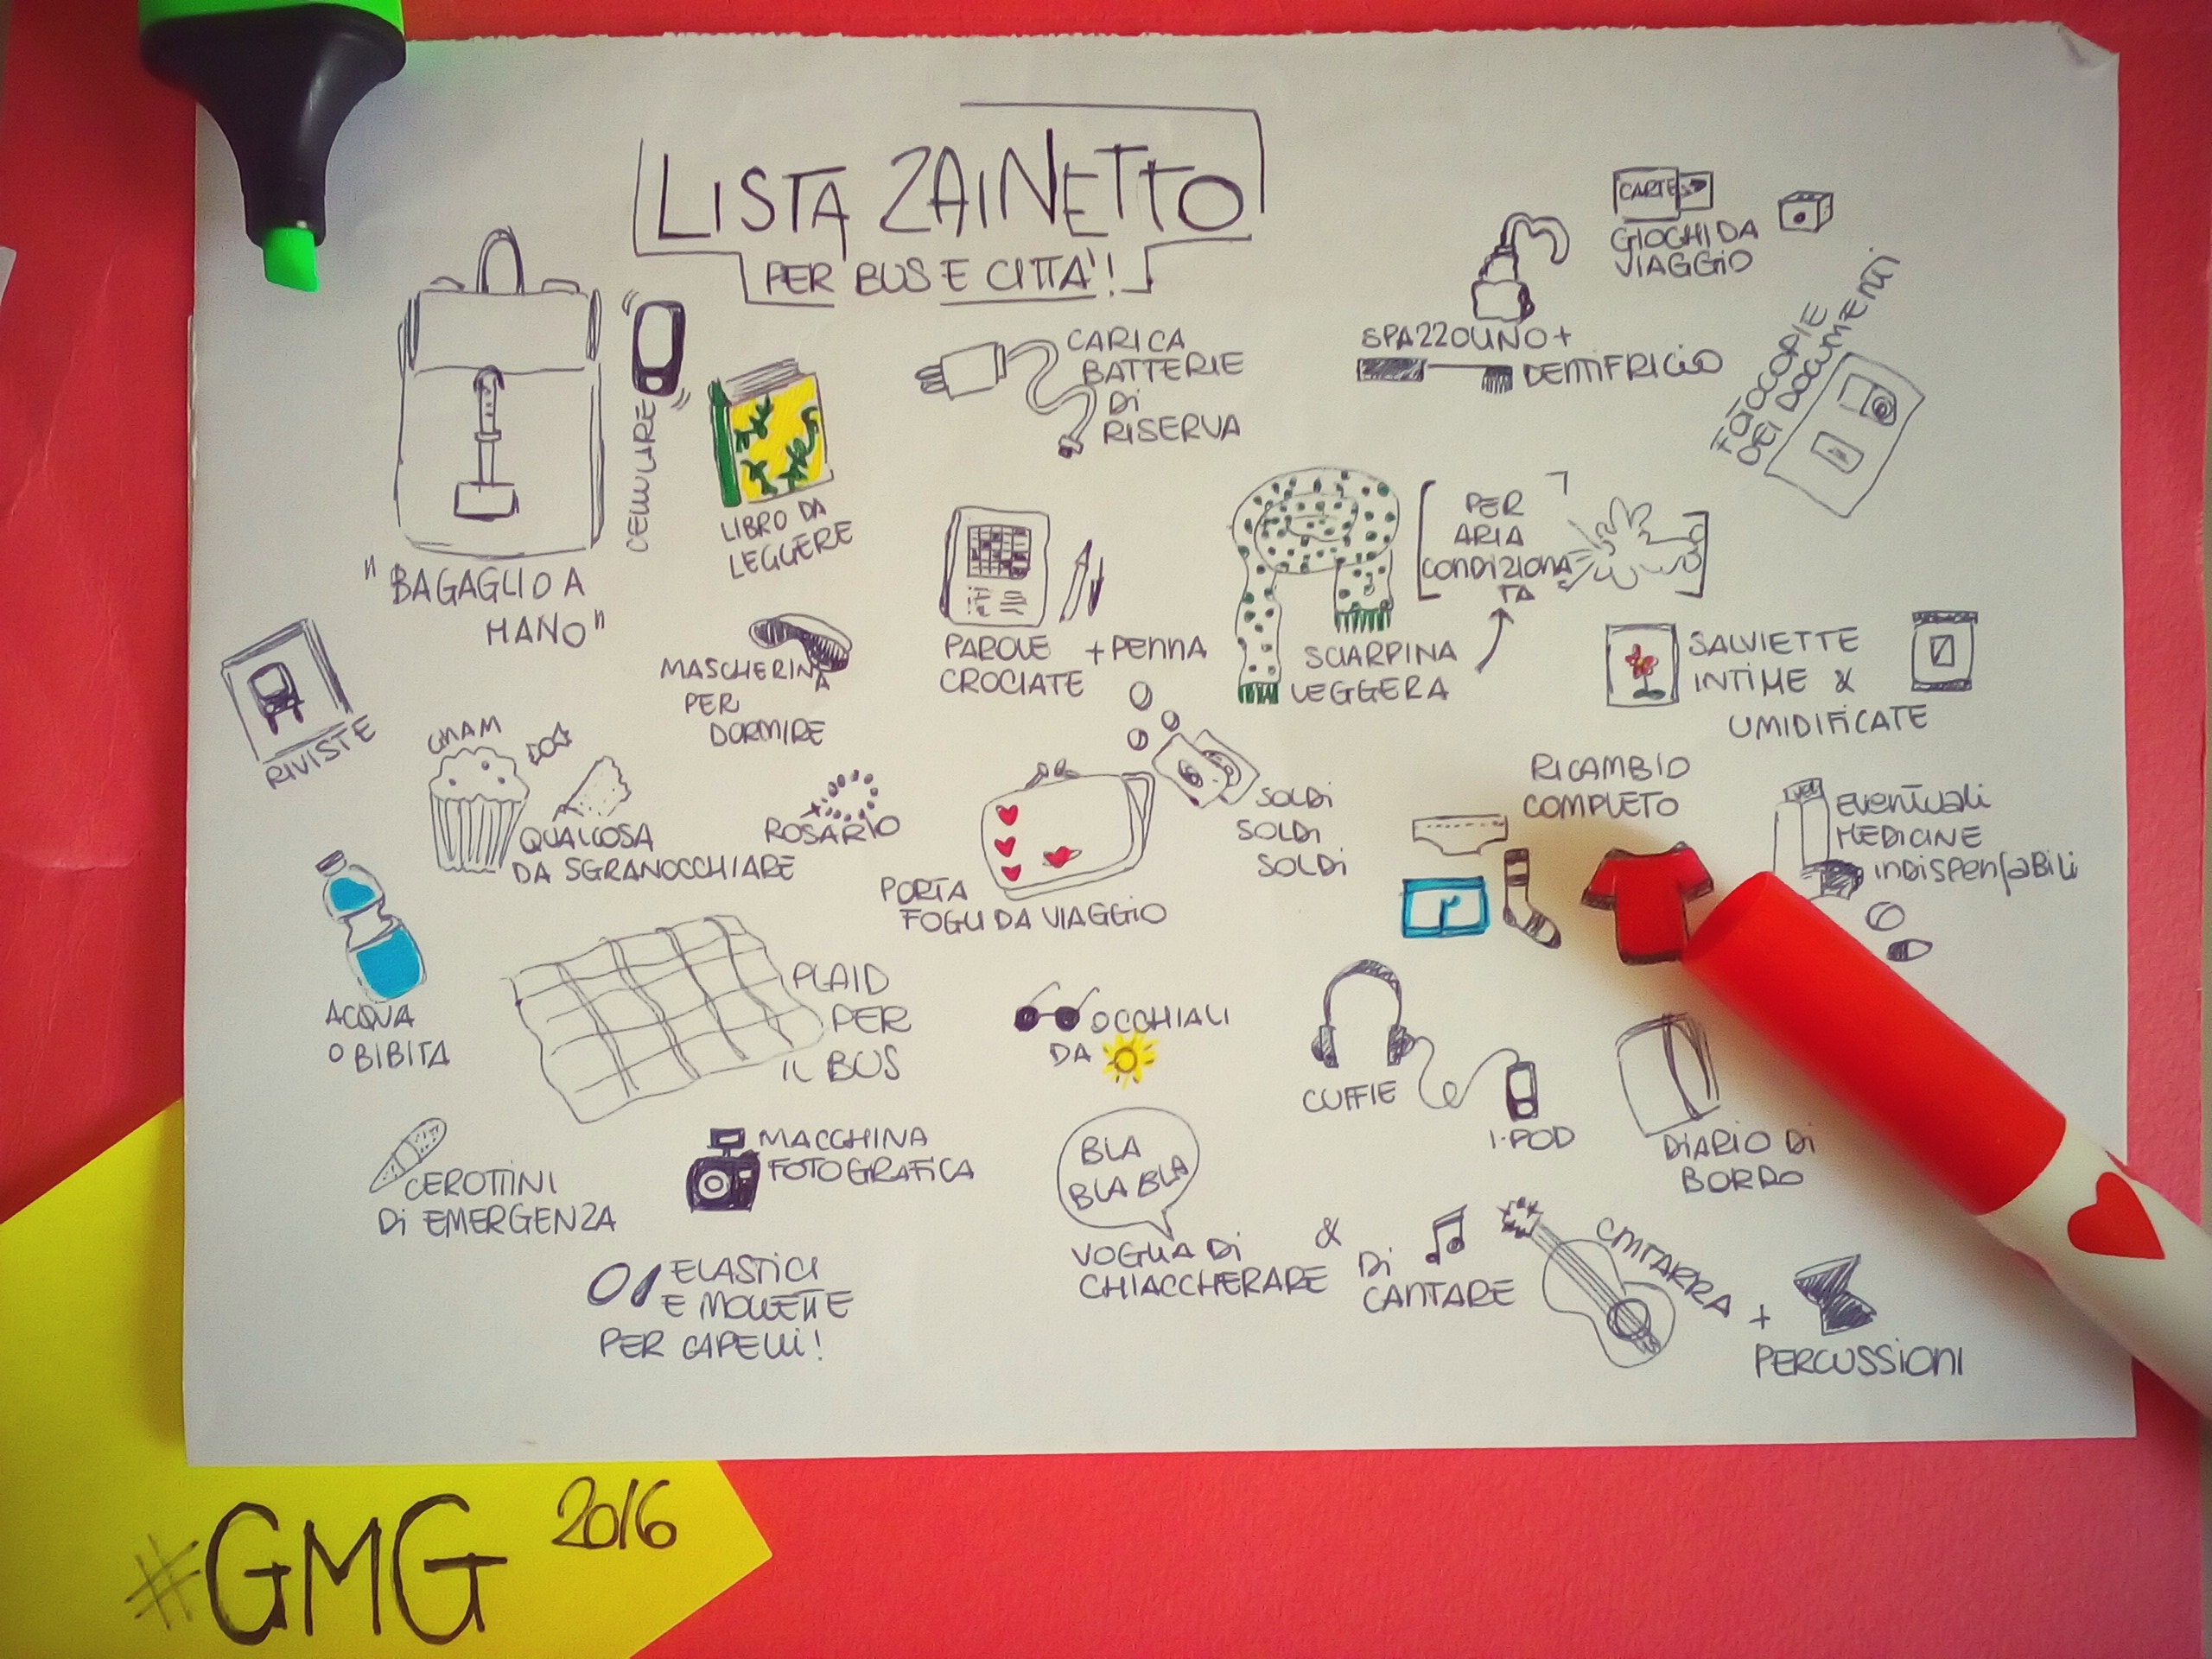 LISTA ZAINETTO
PER BUS E CITTA'!
"BAGAGLIO A
MANO"
CELLULARE
LIBRO DA
LEGGERE
CARICA
BATTERIE
Di
RISERVA
SPAZZOLINO +
DENTIFRICIO
CARTE
GIOCHI DA
VIAGGIO
FOTOCOPIE
DEI DOCUMENTI
RIVISTE
MASCHERINA
PER
DORMIRE
PAROLE
CROCIATE
+ PENNA
SCIARPINA
LEGGERA
PER
ARIA
CONDIZIONA
TA
SALVIETTE
INTIME &
UMIDIFICATE
GNAM
QUALCOSA
DA SGRANOCCHIARE
ROSARIO
PORTA
FOGLI DA VIAGGIO
SOLDi
SOLDi
SOLDi
RICAMBIO
COMPLETO
EVENTUALI
MEDICINE
iNDISPENSABiLi
ACQUA
O BIBITA
PLAID
PER
IL BUS
OCCHIALI
DA
CUFFIE
I-POD
DiARIO Di
BORDO
CEROTTINI
Di EMERGENZA
MACCHINA
FOTOGRAFICA
ELASTiCi
E MOLLETTE
PER CAPELLi!
BLA
BLA BLA
VOGLIA Di
CHIACCHERARE
&
Di
CANTARE
CHITARRA
+
PERCUSSiONI
#GMG 2016